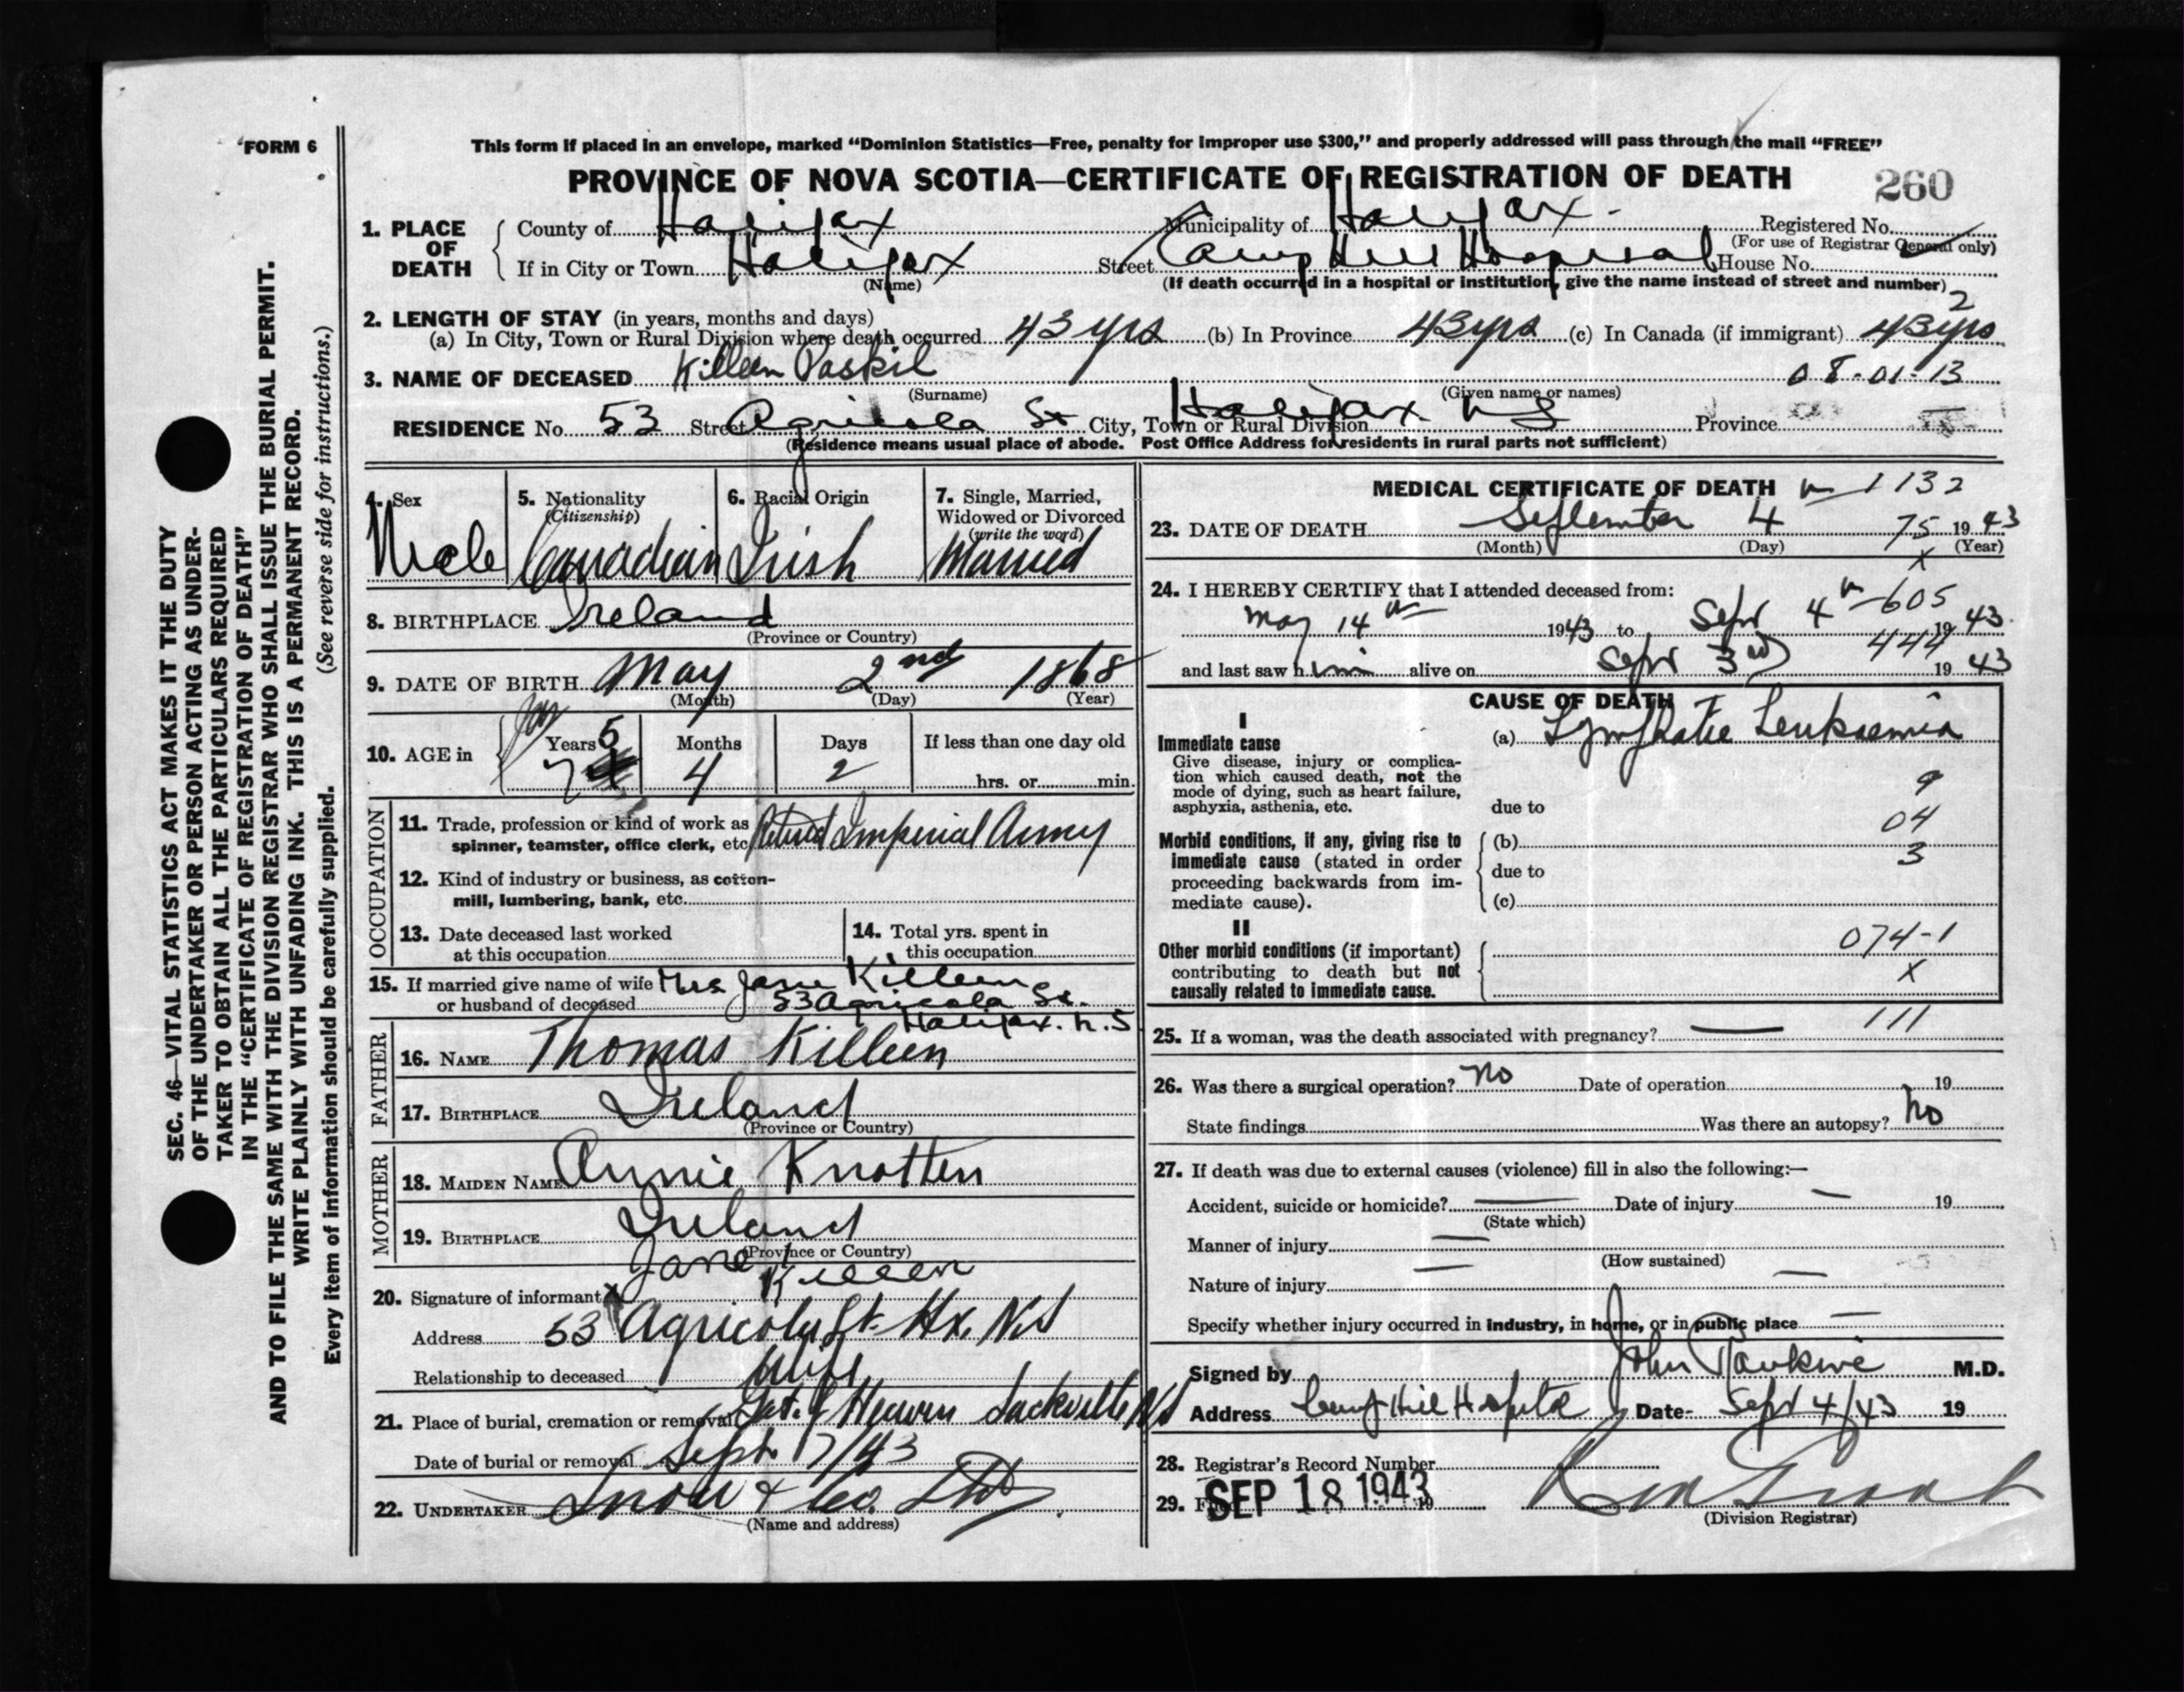 FORM 6
This form if placed in an envelope, marked “Dominion Statistics—Free, penalty for improper use $300,” and properly addressed will pass through the mail “FREE”
PROVINCE OF NOVA SCOTIA—CERTIFICATE OF REGISTRATION OF DEATH 260
1. PLACE OF DEATH
County of Halifax Municipality of Halifax. Registered No.
(For use of Registrar General only)
If in City or Town Halifax Street Camp Hill Hospital House No.
(Name) (If death occurred in a hospital or institution, give the name instead of street and number)
2
2. LENGTH OF STAY (in years, months and days)
(a) In City, Town or Rural Division where death occurred 43 yrs (b) In Province 43 yrs (c) In Canada (if immigrant) 43 yrs
3. NAME OF DECEASED Killeen Paskil 08-01-13
(Surname) (Given name or names)
RESIDENCE No. 53 Street Agricola St City, Town or Rural Division Halifax NS Province
(Residence means usual place of abode. Post Office Address for residents in rural parts not sufficient)
4. Sex Male
5. Nationality (Citizenship) Canadian
6. Racial Origin Irish
7. Single, Married, Widowed or Divorced (write the word) Married
8. BIRTHPLACE Ireland
(Province or Country)
9. DATE OF BIRTH May 2nd 1868
(Month) (Day) (Year)
10. AGE in Years 75 Months 4 Days 2 If less than one day old
hrs. or min.
OCCUPATION
11. Trade, profession or kind of work as spinner, teamster, office clerk, etc. Retired Imperial Army
12. Kind of industry or business, as cotton-mill, lumbering, bank, etc.
13. Date deceased last worked at this occupation
14. Total yrs. spent in this occupation
15. If married give name of wife or husband of deceased Mrs Jane Killeen
53 Agricola St.
Halifax. N.S
FATHER
16. NAME Thomas Killeen
17. BIRTHPLACE Ireland
(Province or Country)
MOTHER
18. MAIDEN NAME Annie Knotten
19. BIRTHPLACE Ireland
(Province or Country)
20. Signature of informant x Jane Killeen
Address 53 Agricola St. Hx. NS
Relationship to deceased Wife
21. Place of burial, cremation or removal Sackville NS
Date of burial or removal Sept 7/43
22. UNDERTAKER Snow & Co. Ltd
(Name and address)
MEDICAL CERTIFICATE OF DEATH 1132
23. DATE OF DEATH September 4 75 1943
(Month) (Day) (Year)
x
24. I HEREBY CERTIFY that I attended deceased from:
605
May 14th 1943 to Sept 4th 1943.
444
and last saw him alive on Sept 3rd 1943
CAUSE OF DEATH
I
Immediate cause
Give disease, injury or complication which caused death, not the mode of dying, such as heart failure, asphyxia, asthenia, etc.
(a) Lymphatic Leukaemia
9
due to
04
Morbid conditions, if any, giving rise to immediate cause (stated in order proceeding backwards from immediate cause).
(b)
3
due to
(c)
II
Other morbid conditions (if important) contributing to death but not causally related to immediate cause.
074-1
x
111
25. If a woman, was the death associated with pregnancy? —
26. Was there a surgical operation? No Date of operation 19
State findings Was there an autopsy? No
27. If death was due to external causes (violence) fill in also the following:—
Accident, suicide or homicide? — Date of injury — 19
(State which)
Manner of injury —
(How sustained)
Nature of injury — —
Specify whether injury occurred in industry, in home, or in public place —
Signed by John Rankine M.D.
Address Camp Hill Hospital Date- Sept 4/43 19
28. Registrar's Record Number
29. Filed SEP 18 1943 19
(Division Registrar)
SEC. 46—VITAL STATISTICS ACT MAKES IT THE DUTY
OF THE UNDERTAKER OR PERSON ACTING AS UNDER-
TAKER TO OBTAIN ALL THE PARTICULARS REQUIRED
IN THE “CERTIFICATE OF REGISTRATION OF DEATH”
AND TO FILE THE SAME WITH THE DIVISION REGISTRAR WHO SHALL ISSUE THE BURIAL PERMIT.
WRITE PLAINLY WITH UNFADING INK. THIS IS A PERMANENT RECORD.
Every item of information should be carefully supplied. (See reverse side for instructions.)